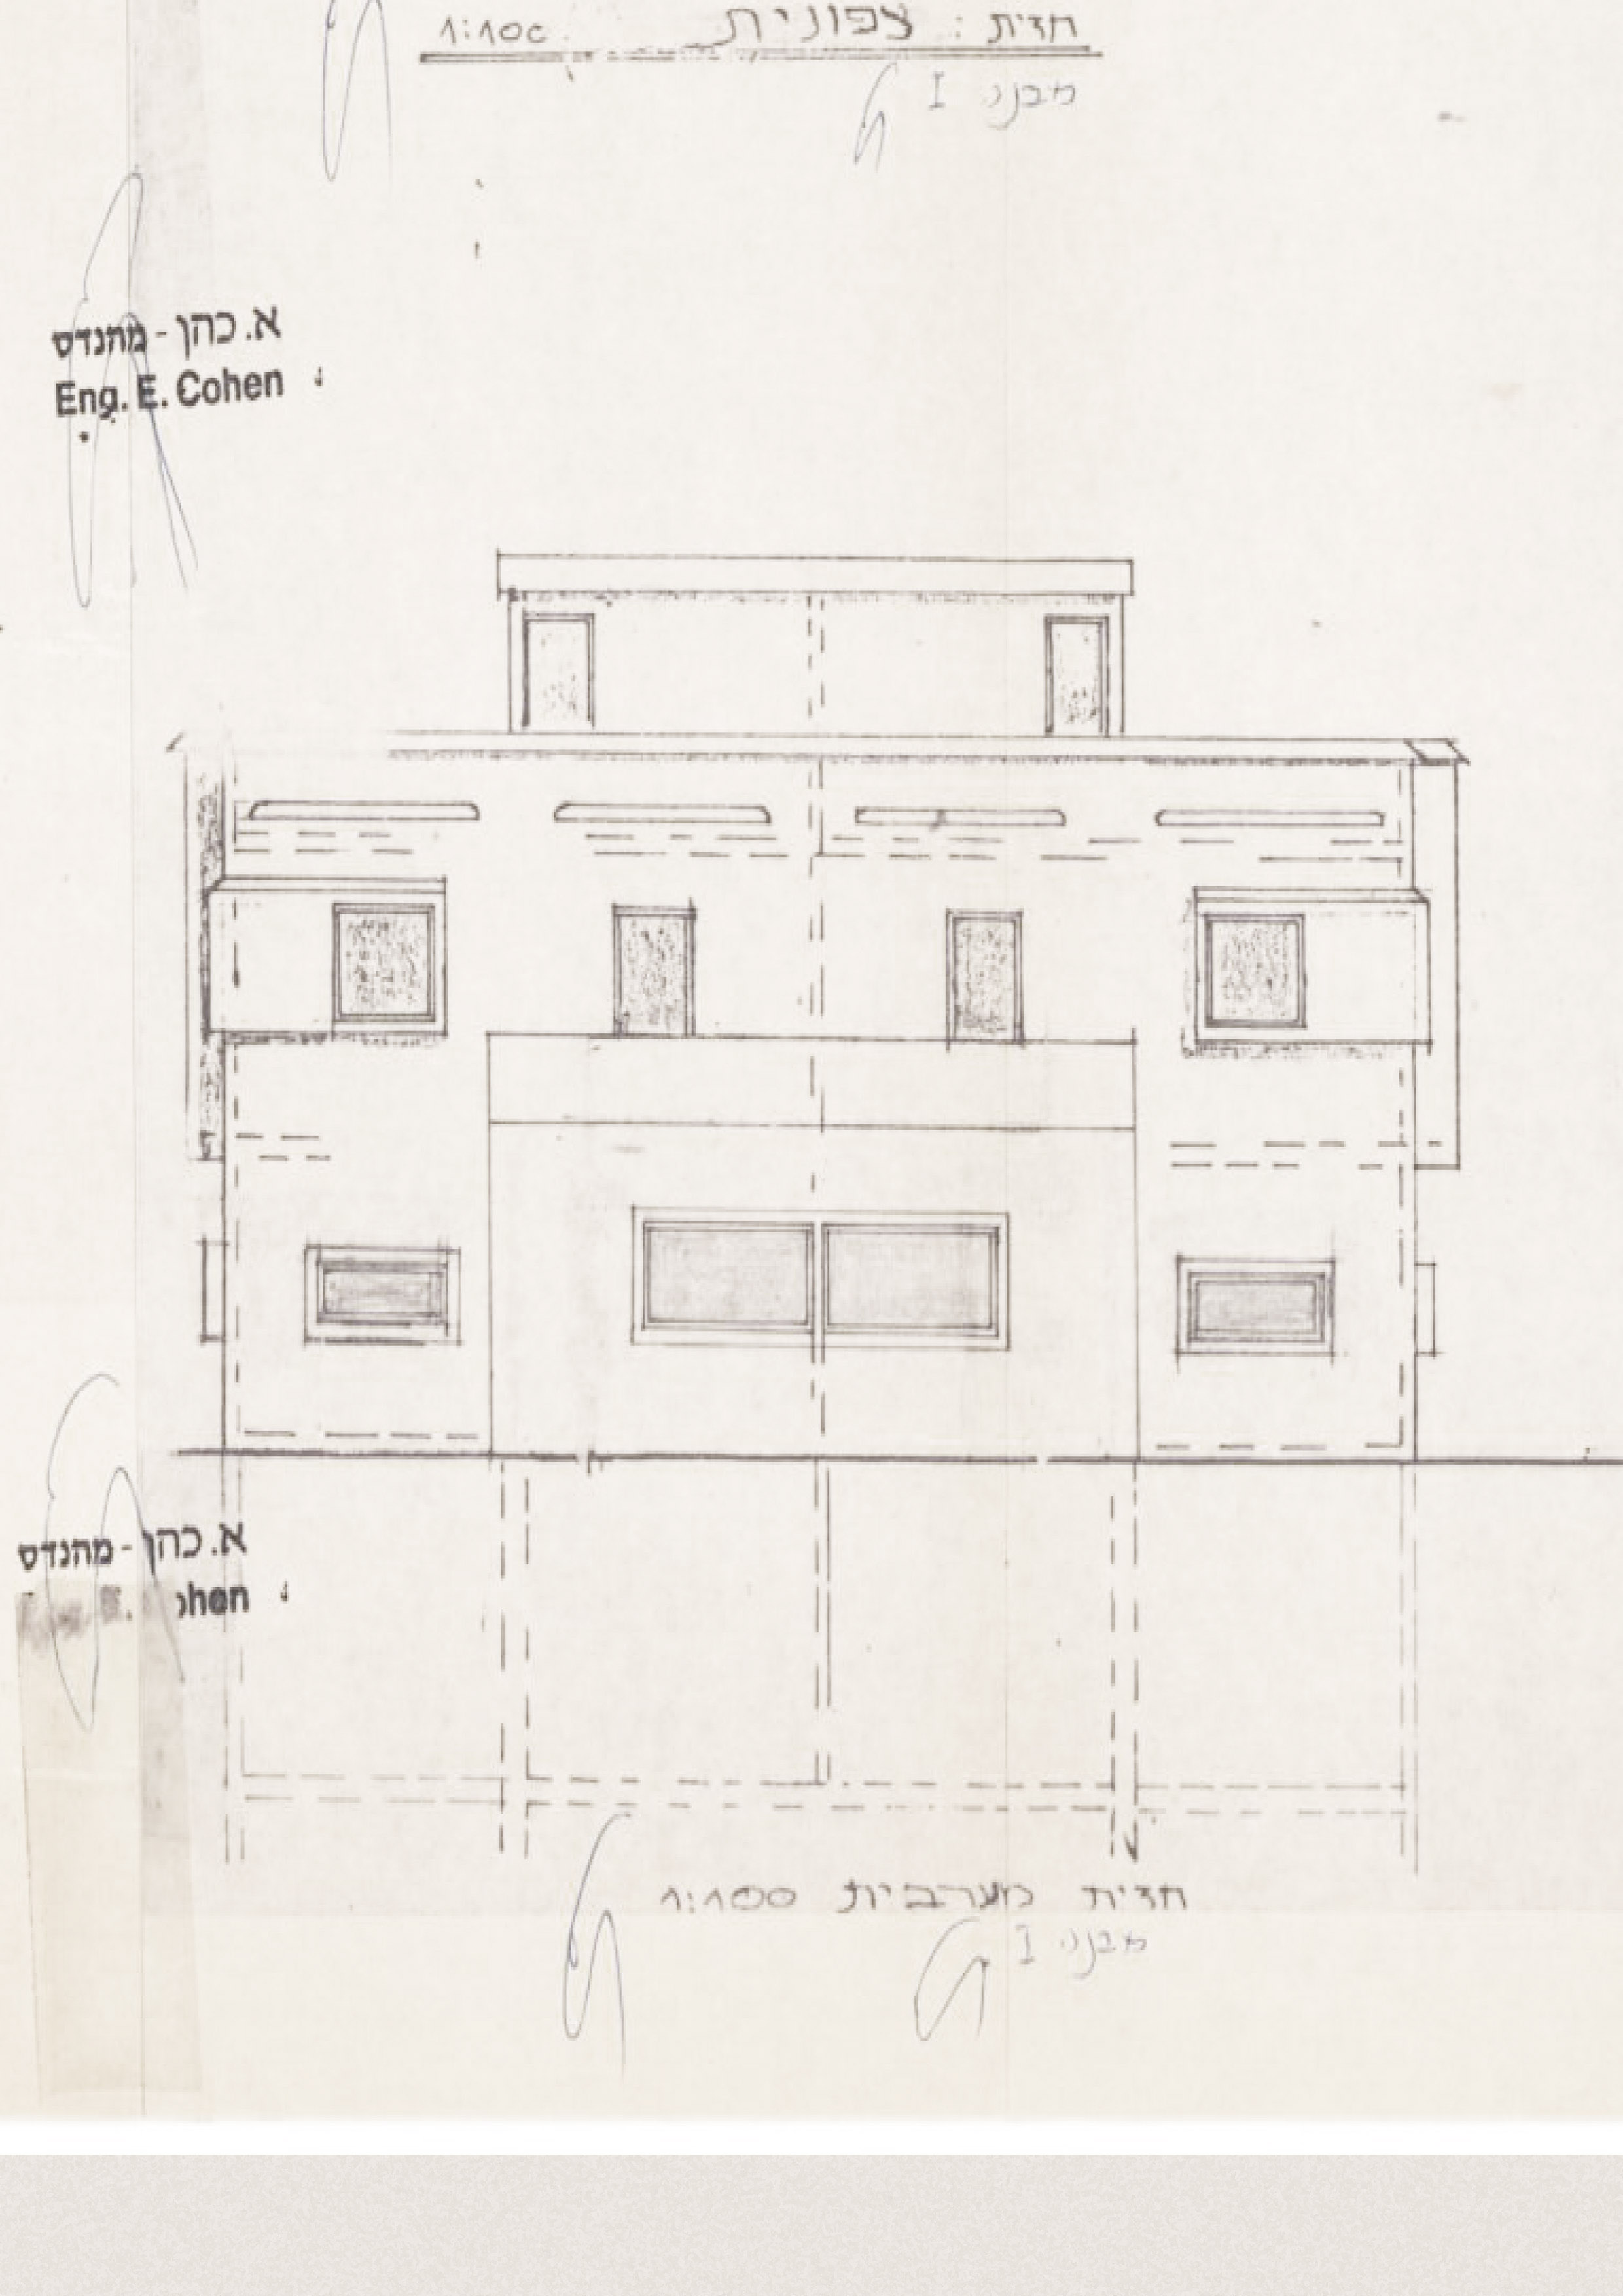 חזית : צפונית 1:100
מבנה I
א. כהן - מהנדס
Eng. E. Cohen
א. כהן - מהנדס
ohen
חזית מערבית 1:100
מבנה I